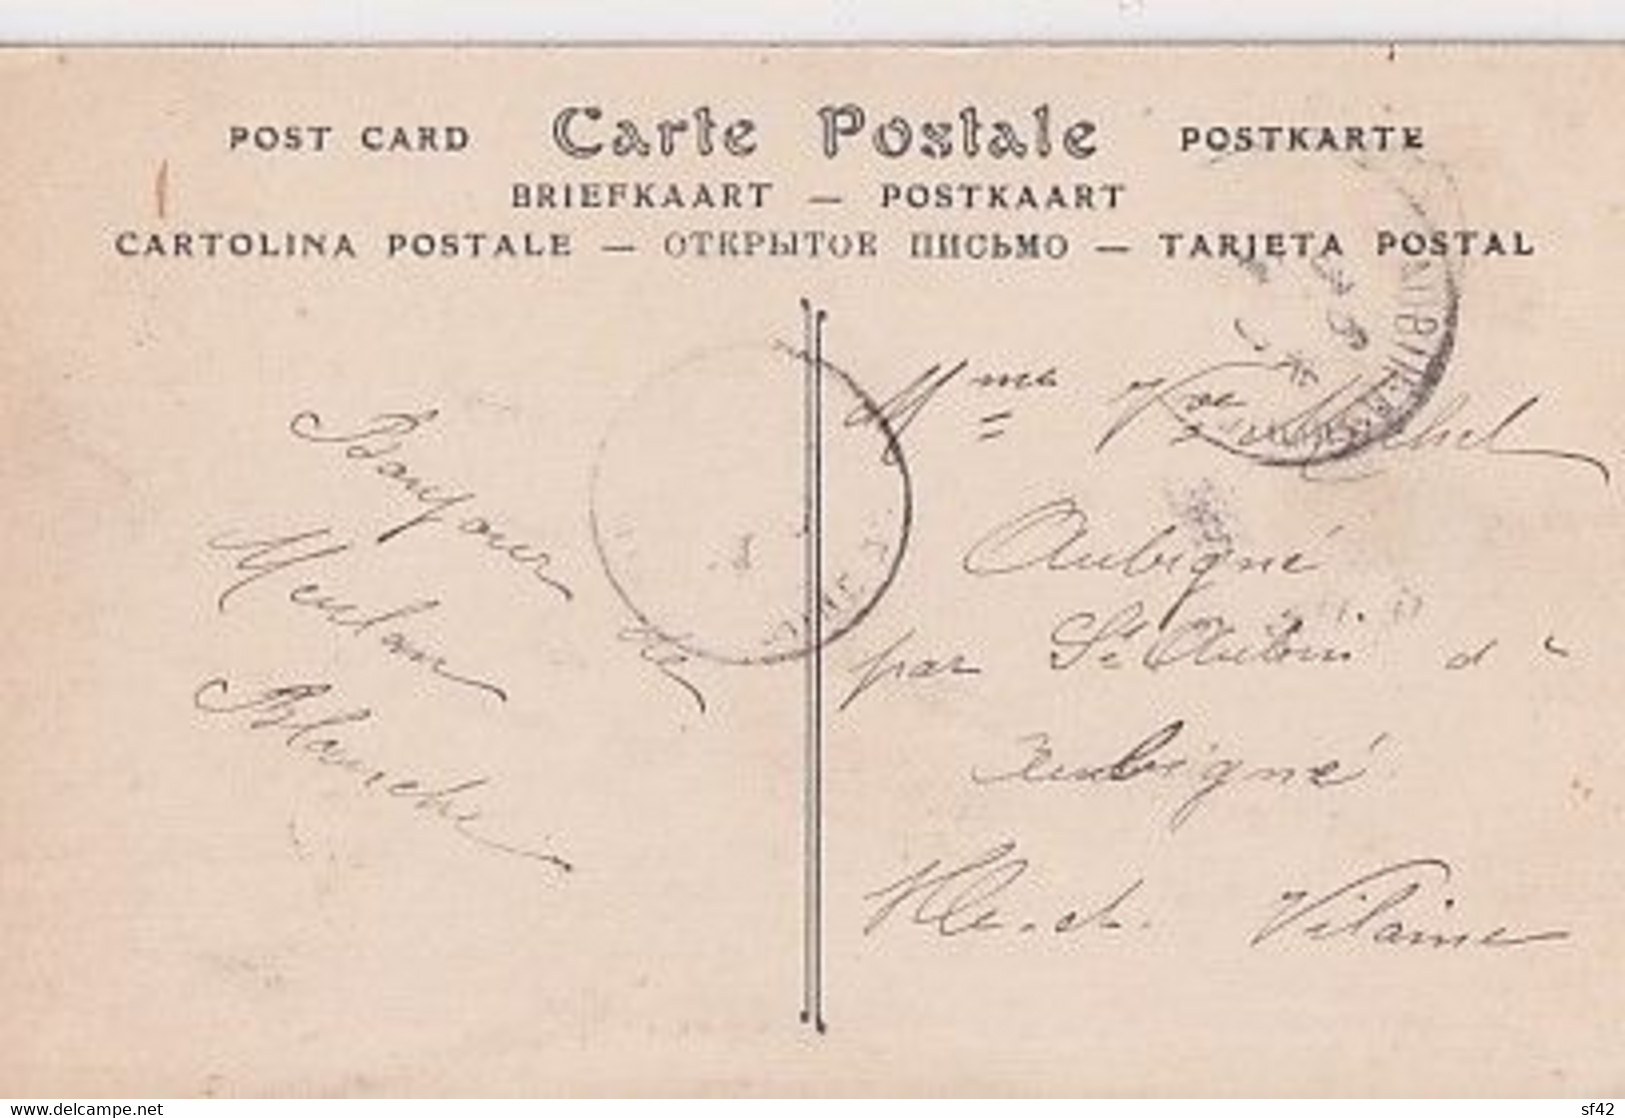 POST CARD Carte Postale POSTKARTE
BRIEFKAART — POSTKAART
CARTOLINA POSTALE — ОТКРЫТОЕ ПИСЬМО — TARJETA POSTAL
Bonjour de
Meulan
Blanche
Mme Vve
Aubigné
par St Aubin d
Aubigné
Ille. et. Vilaine
delcampe.net
sf42